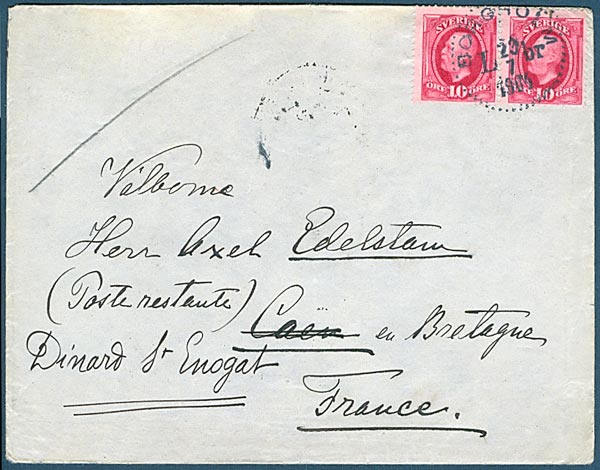 SVERIGE SVERIGE
ÖRE 10 ÖRE ÖRE 10 ÖRE
Välborne
Herr Axel Edelstam
(Poste restante)
Caën en Bretagne
Dinard St Enogat
France.